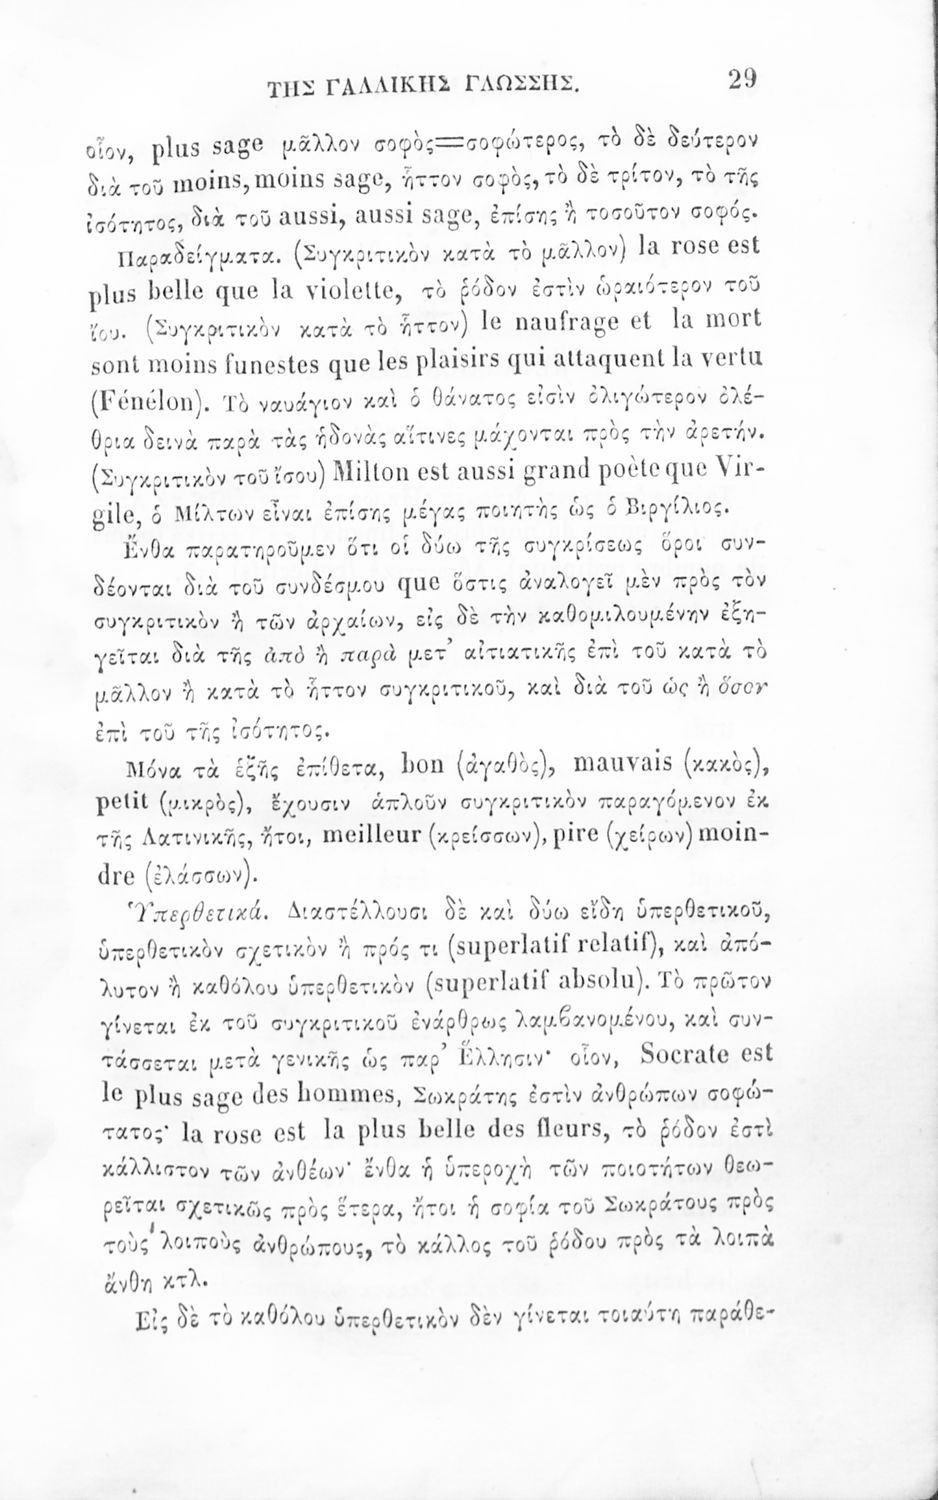 ΤΗΣ ΓΑΛΛΙΚΗΣ ΓΛΩΣΣΗΣ. 29
οἷον, plus sage μᾶλλον σοφὸς=σοφώτερος, τὸ δὲ δεύτερον
διὰ τοῦ moins, moins sage, ἧττον σοφὸς, τὸ δὲ τρίτον, τὸ τῆς
ἰσότητος, διὰ τοῦ aussi, aussi sage, ἐπίσης ἢ τοσοῦτον σοφός.
Παραδείγματα. (Συγκριτικὸν κατὰ τὸ μᾶλλον) la rose est
plus belle que la violette, τὸ ῥόδον ἐστὶν ὡραιότερον τοῦ
ἴου. (Συγκριτικὸν κατὰ τὸ ἧττον) le naufrage et la mort
sont moins funestes que les plaisirs qui attaquent la vertu
(Fénélon). Τὸ ναυάγιον καὶ ὁ θάνατος εἰσὶν ὀλιγώτερον ὀλέ-
θρια δεινὰ παρὰ τὰς ἡδονὰς αἵτινες μάχονται πρὸς τὴν ἀρετήν.
(Συγκριτικὸν τοῦ ἴσου) Milton est aussi grand poète que Vir-
gile, ὁ Μίλτων εἶναι ἐπίσης μέγας ποιητὴς ὡς ὁ Βιργίλιος.
Ἔνθα παρατηροῦμεν ὅτι οἱ δύω τῆς συγκρίσεως ὅροι συν-
δέονται διὰ τοῦ συνδέσμου que ὅστις ἀναλογεῖ μὲν πρὸς τὸν
συγκριτικὸν ἢ τῶν ἀρχαίων, εἰς δὲ τὴν καθομιλουμένην ἐξη-
γεῖται διὰ τῆς ἀπὸ ἢ παρὰ μετ᾽ αἰτιατικῆς ἐπὶ τοῦ κατὰ τὸ
μᾶλλον ἢ κατὰ τὸ ἧττον συγκριτικοῦ, καὶ διὰ τοῦ ὡς ἢ ὅσον
ἐπὶ τοῦ τῆς ἰσότητος.
Μόνα τὰ ἑξῆς ἐπίθετα, bon (ἀγαθὸς), mauvais (κακὸς),
petit (μικρὸς), ἔχουσιν ἁπλοῦν συγκριτικὸν παραγόμενον ἐκ
τῆς Λατινικῆς, ἤτοι, meilleur (κρείσσων), pire (χείρων) moin-
dre (ἐλάσσων).
Ὑπερθετικά. Διαστέλλουσι δὲ καὶ δύω εἴδη ὑπερθετικοῦ,
ὑπερθετικὸν σχετικὸν ἢ πρός τι (superlatif relatif), καὶ ἀπό-
λυτον ἢ καθόλου ὑπερθετικὸν (superlatif absolu). Τὸ πρῶτον
γίνεται ἐκ τοῦ συγκριτικοῦ ἐνάρθρως λαμβανομένου, καὶ συν-
τάσσεται μετὰ γενικῆς ὡς παρ᾽ Ἕλλησιν· οἷον, Socrate est
le plus sage des hommes, Σωκράτης ἐστὶν ἀνθρώπων σοφώ-
τατος· la rose est la plus belle des fleurs, τὸ ῥόδον ἐστὶ
κάλλιστον τῶν ἀνθέων· ἔνθα ἡ ὑπεροχὴ τῶν ποιοτήτων θεω-
ρεῖται σχετικῶς πρὸς ἕτερα, ἤτοι ἡ σοφία τοῦ Σωκράτους πρὸς
τοὺς λοιποὺς ἀνθρώπους, τὸ κάλλος τοῦ ῥόδου πρὸς τὰ λοιπὰ
ἄνθη κτλ.
Εἰς δὲ τὸ καθόλου ὑπερθετικὸν δὲν γίνεται τοιαύτη παράθε-